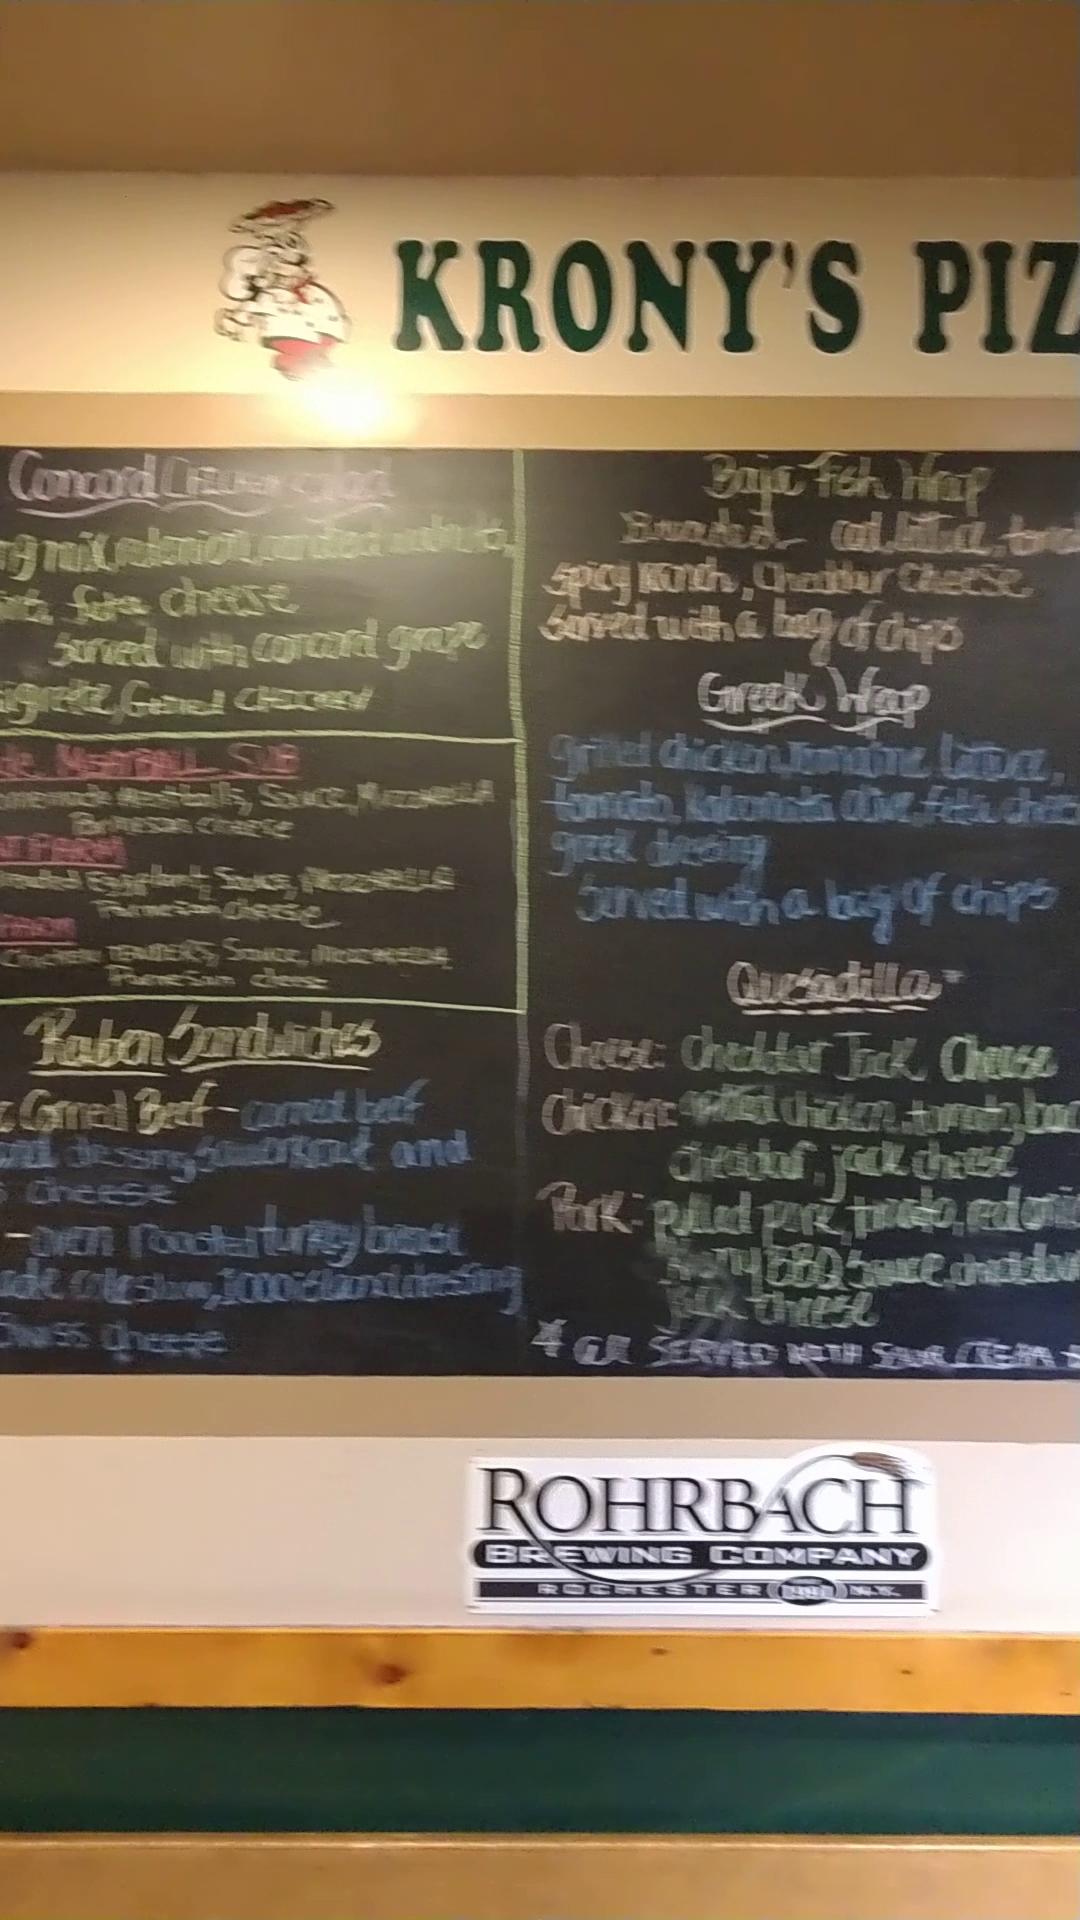 KRONY'S PIZ
Concord Chicken Salad
mix, red onion, candied walnuts,
feta cheese
Served with concord grape
Grilled chicken
MEATBALL SUB
meatballs, Sauce, Mozzarella
Parmesan cheese
PARM
Eggplant, Sauce, Mozzarella
Parmesan cheese
Chicken tenders, Sauce, mozzarella,
Parmesan cheese
Reuben Sandwiches
Corned Beef - corned beef
dressing, sauerkraut and
cheese
- oven roasted turkey breast
coleslaw, 1000 island dressing
Swiss cheese
Baja Fish Wrap
Breaded cod, lettuce,
Spicy Ranch, Cheddar Cheese
Served with a bag of chips
Greek Wrap
Grilled chicken, romaine lettuce,
tomato, Kalamata olive, feta
greek dressing
Served with a bag of chips
Quesadilla*
Cheese: cheddar Jack Cheese
Chicken: grilled chicken, tomato,
cheddar, jack cheese
Pork: pulled pork, tomato,
BBQ Sauce, cheddar
jack cheese
* all SERVED WITH SOUR CREAM
ROHRBACH
BREWING COMPANY
ROCHESTER 1991 N.Y.